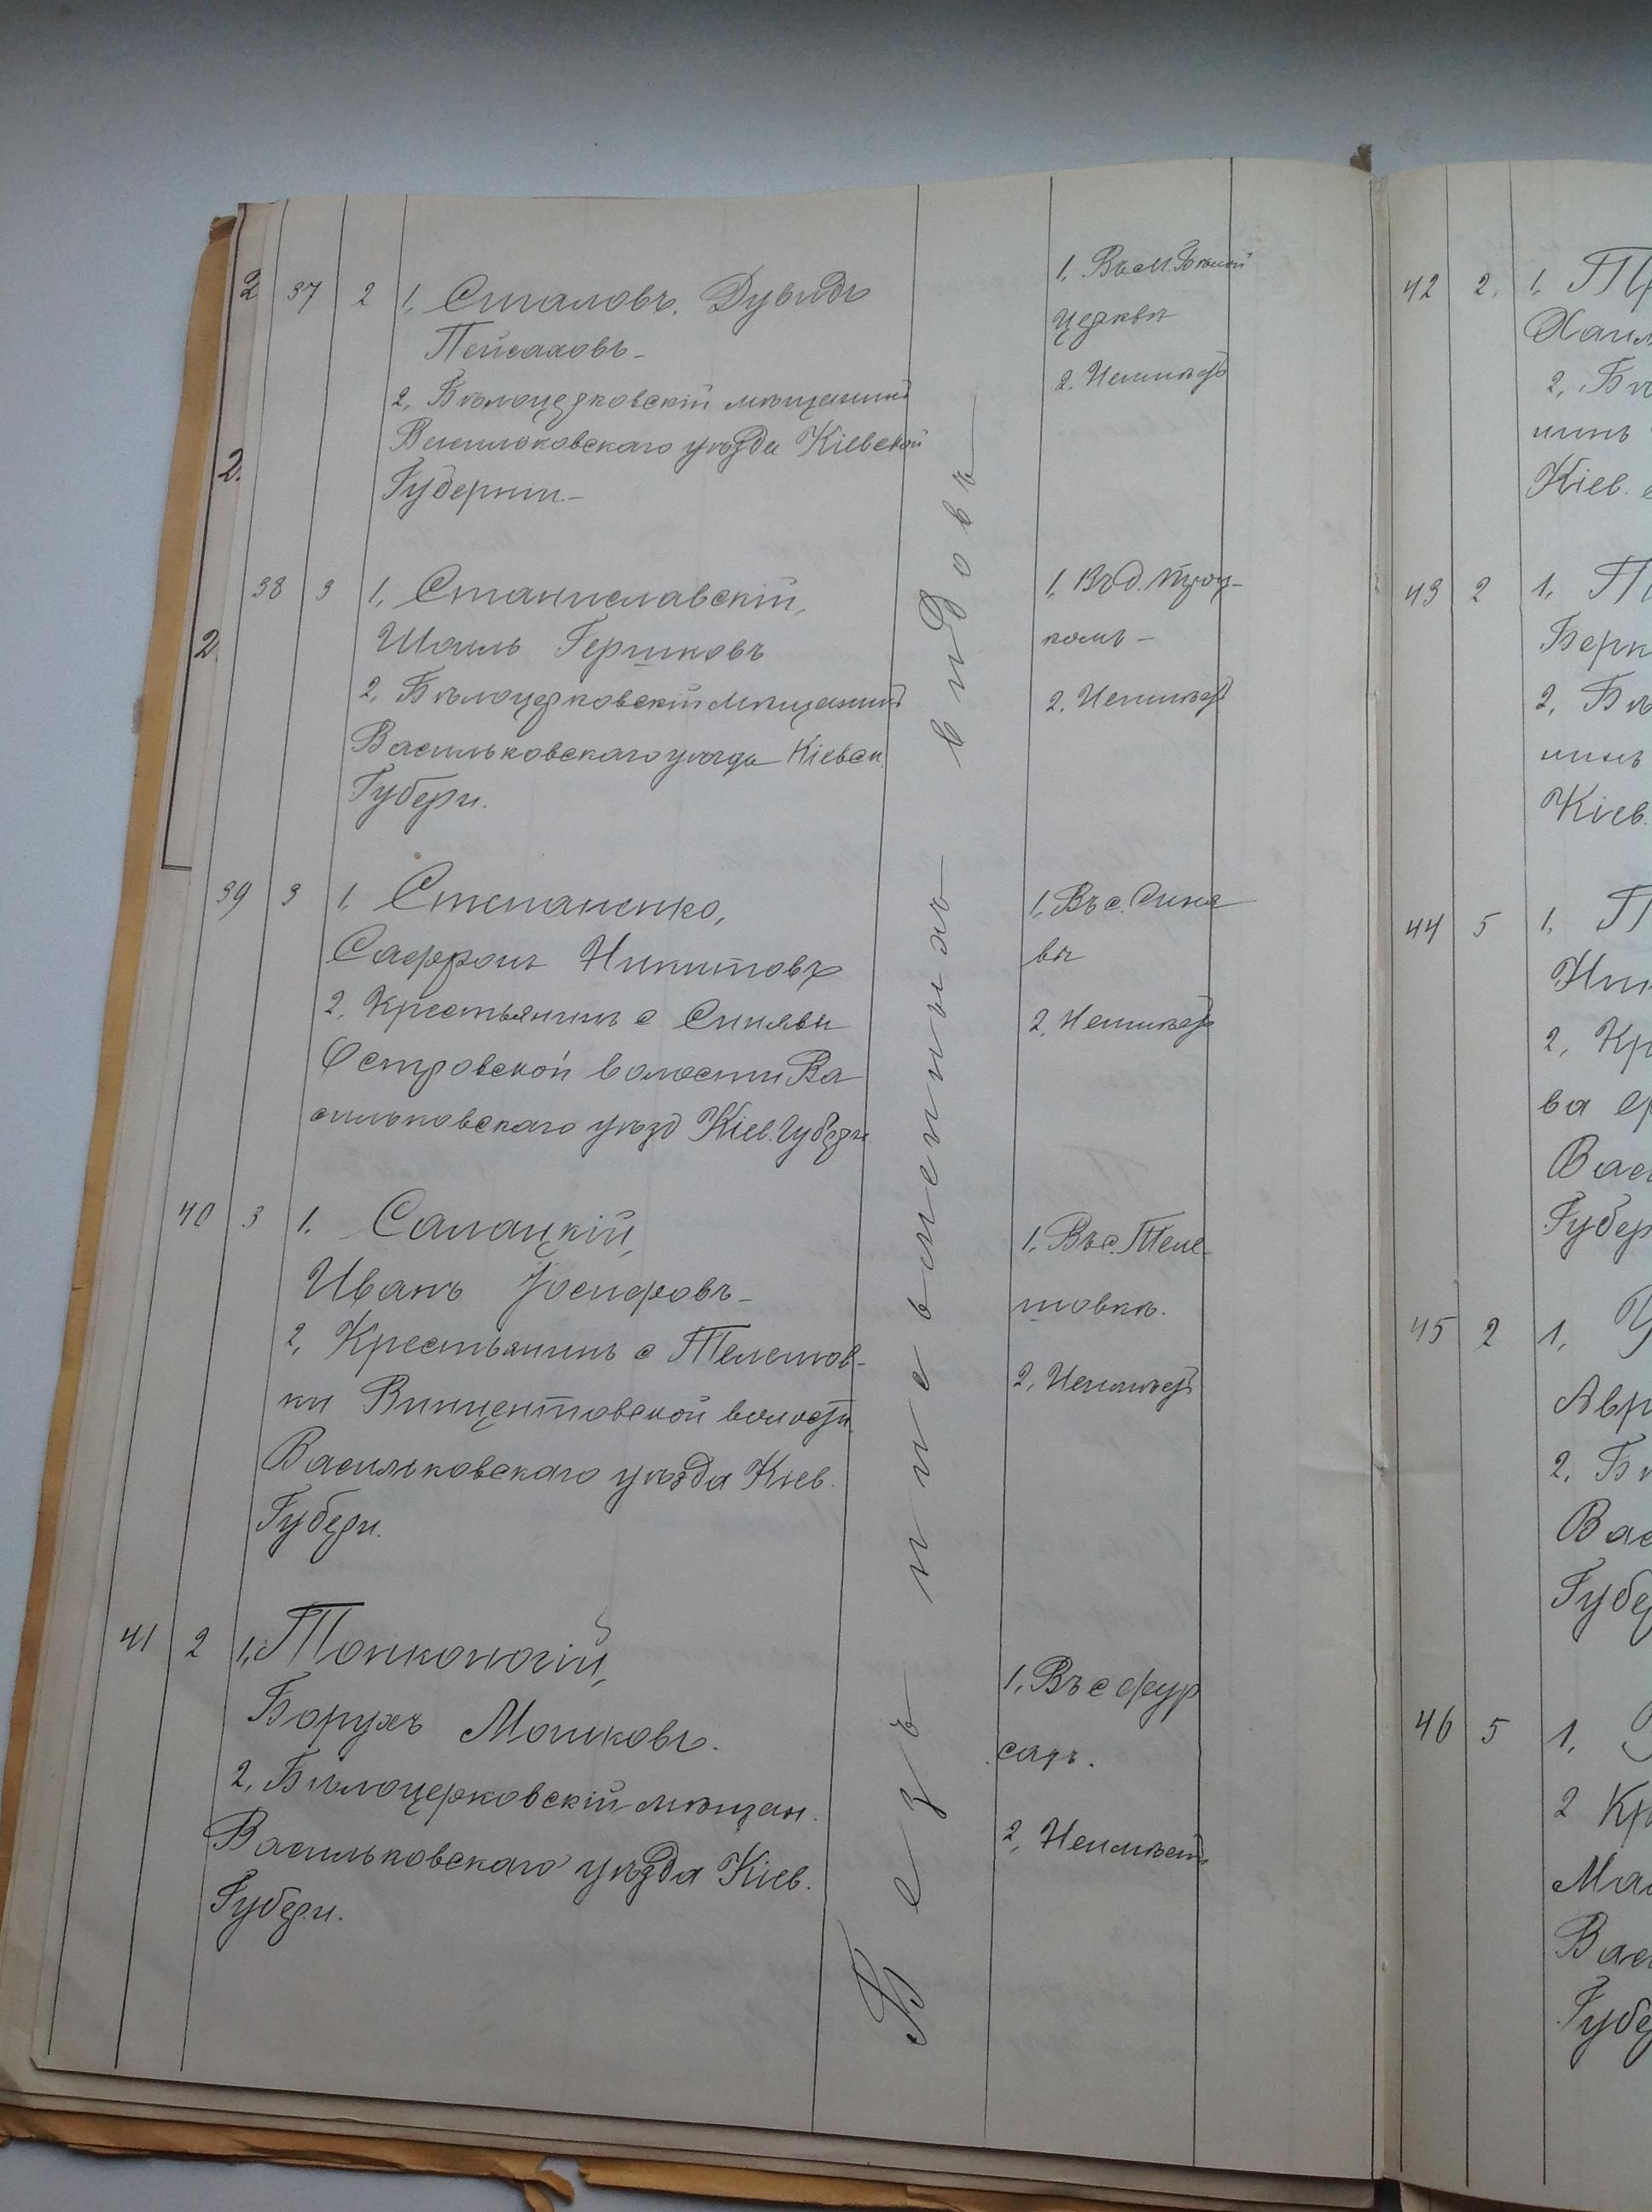 2 37 2 1, Сталовъ, Дувидъ
Пейсаховъ-
2, Бѣлоцерковскій мѣщанинъ
Васильковскаго уѣзда Кіевской
Губерніи.-
1, Въ м. Бѣлой
Церкви
2. Неимѣетъ
2.
38 3 1, Станиславскій,
Шаиль Гершковъ
2, Бѣлоцерковскій мѣщанинъ
Васильковскаго уѣзда Кіевск.
Губерн.
1, Въ д.
комъ-
2, Неимѣет
2
39 3 1, Степаненко,
Сафронъ Никитовъ
2, Крестьянинъ с Синявы
Островской волости Ва
сильковскаго уѣзд Кіев. Губерн
1, Въ с. Синя
вѣ
2, Неимѣетъ
40 3 1. Салацкій,
Иванъ Іосифовъ-
2, Крестьянинъ с Телешов-
ки Винцентовской волости
Васильковскаго уѣзда Кіев.
Губерн.
1, Въ с. Теле-
шовкѣ.
2, Неимѣетъ
41 2 1, Тонконогій,
Борухъ Мошковъ.
2, Бѣлоцерковскій мѣщан.
Васильковскаго уѣзда Кіев.
Губерн.
1, Въ с фур
сахъ.
2, Неимѣетъ
Безъ письменныхъ видовъ
42 2, 1,
2, Бѣ
нинъ
Кіев.
43 2 1,
Берк
2, Бѣ
нинъ
Кіев.
44 5 1,
2, Кр
ва
Вас
Губер
45 2 1,
Авр
2, Б
Вас
Губе
46 5 1,
2 Кр
Ма
Вас
Губе